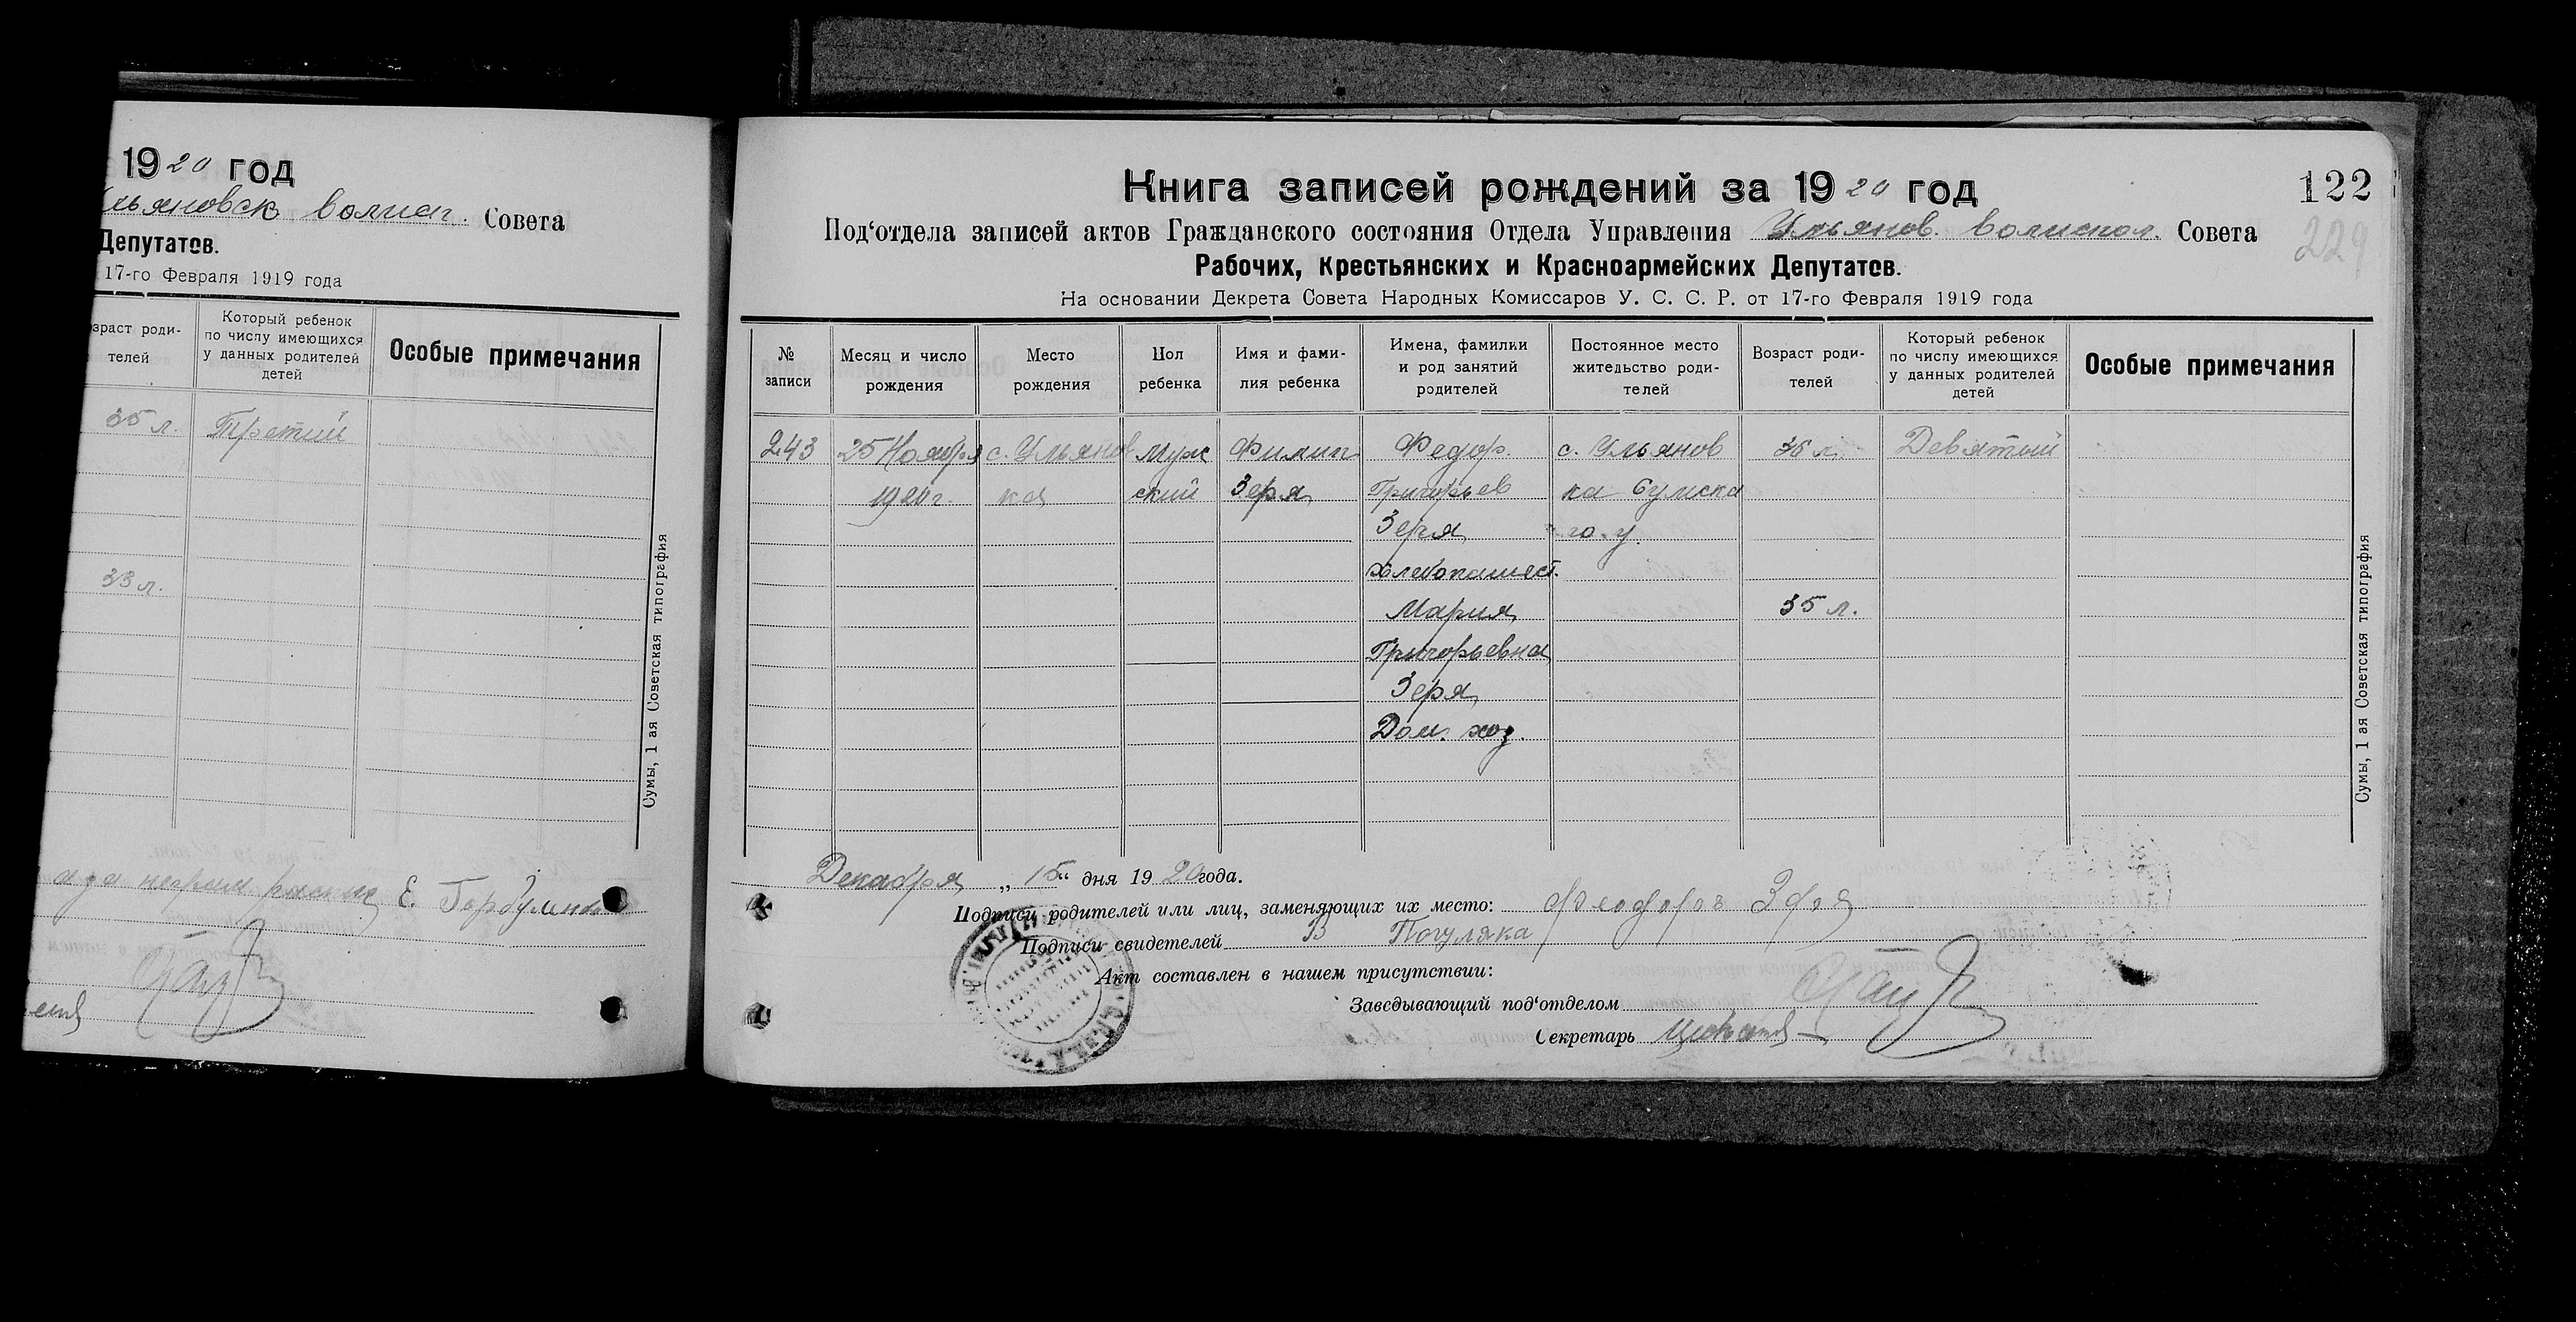 1920 год
льяновск волисп. Совета
Депутатов.
17-го Февраля 1919 года
зраст роди-
телей
Который ребенок
по числу имеющихся
у данных родителей
детей
Особые примечания
35 л. Третий
33 л.
Сумы, 1 ая Советская типография
Е.
Книга записей рождений за 1920 год
122
Под‘отдела записей актов Гражданского состояния Отдела Управления Ульянов. волиспол. Совета
229
Рабочих, Крестьянских и Красноармейских Депутатов.
На основании Декрета Совета Народных Комиссаров У. С. С. Р. от 17-го Февраля 1919 года
№
записи
Месяц и число
рождения
Место
рождения
Пол
ребенка
Имя и фами-
лия ребенка
Имена, фамилии
и род занятий
родителей
Постоянное место
жительство роди-
телей
Возраст роди-
телей
Который ребенок
по числу имеющихся
у данных родителей
детей
Особые примечания
243 25 Ноября с. Ульянов Муж Филип Федор. с. Ульянов 36 л. Девятый
1920 г. ка ский Зеря Григорьев ка Сумска
Зеря го у.
Хлебопашест.
Мария 35 л.
Григорьевна
Зеря
Дом. хоз.
Сумы, 1 ая Советская типография
Декабря „ 15 “ дня 1920 года.
Подписи родителей или лиц, заменяющих их место:
Подписи свидетелей В Погуляка
Акт составлен в нашем присутствии:
Заведывающий под‘отделом
Секретарь